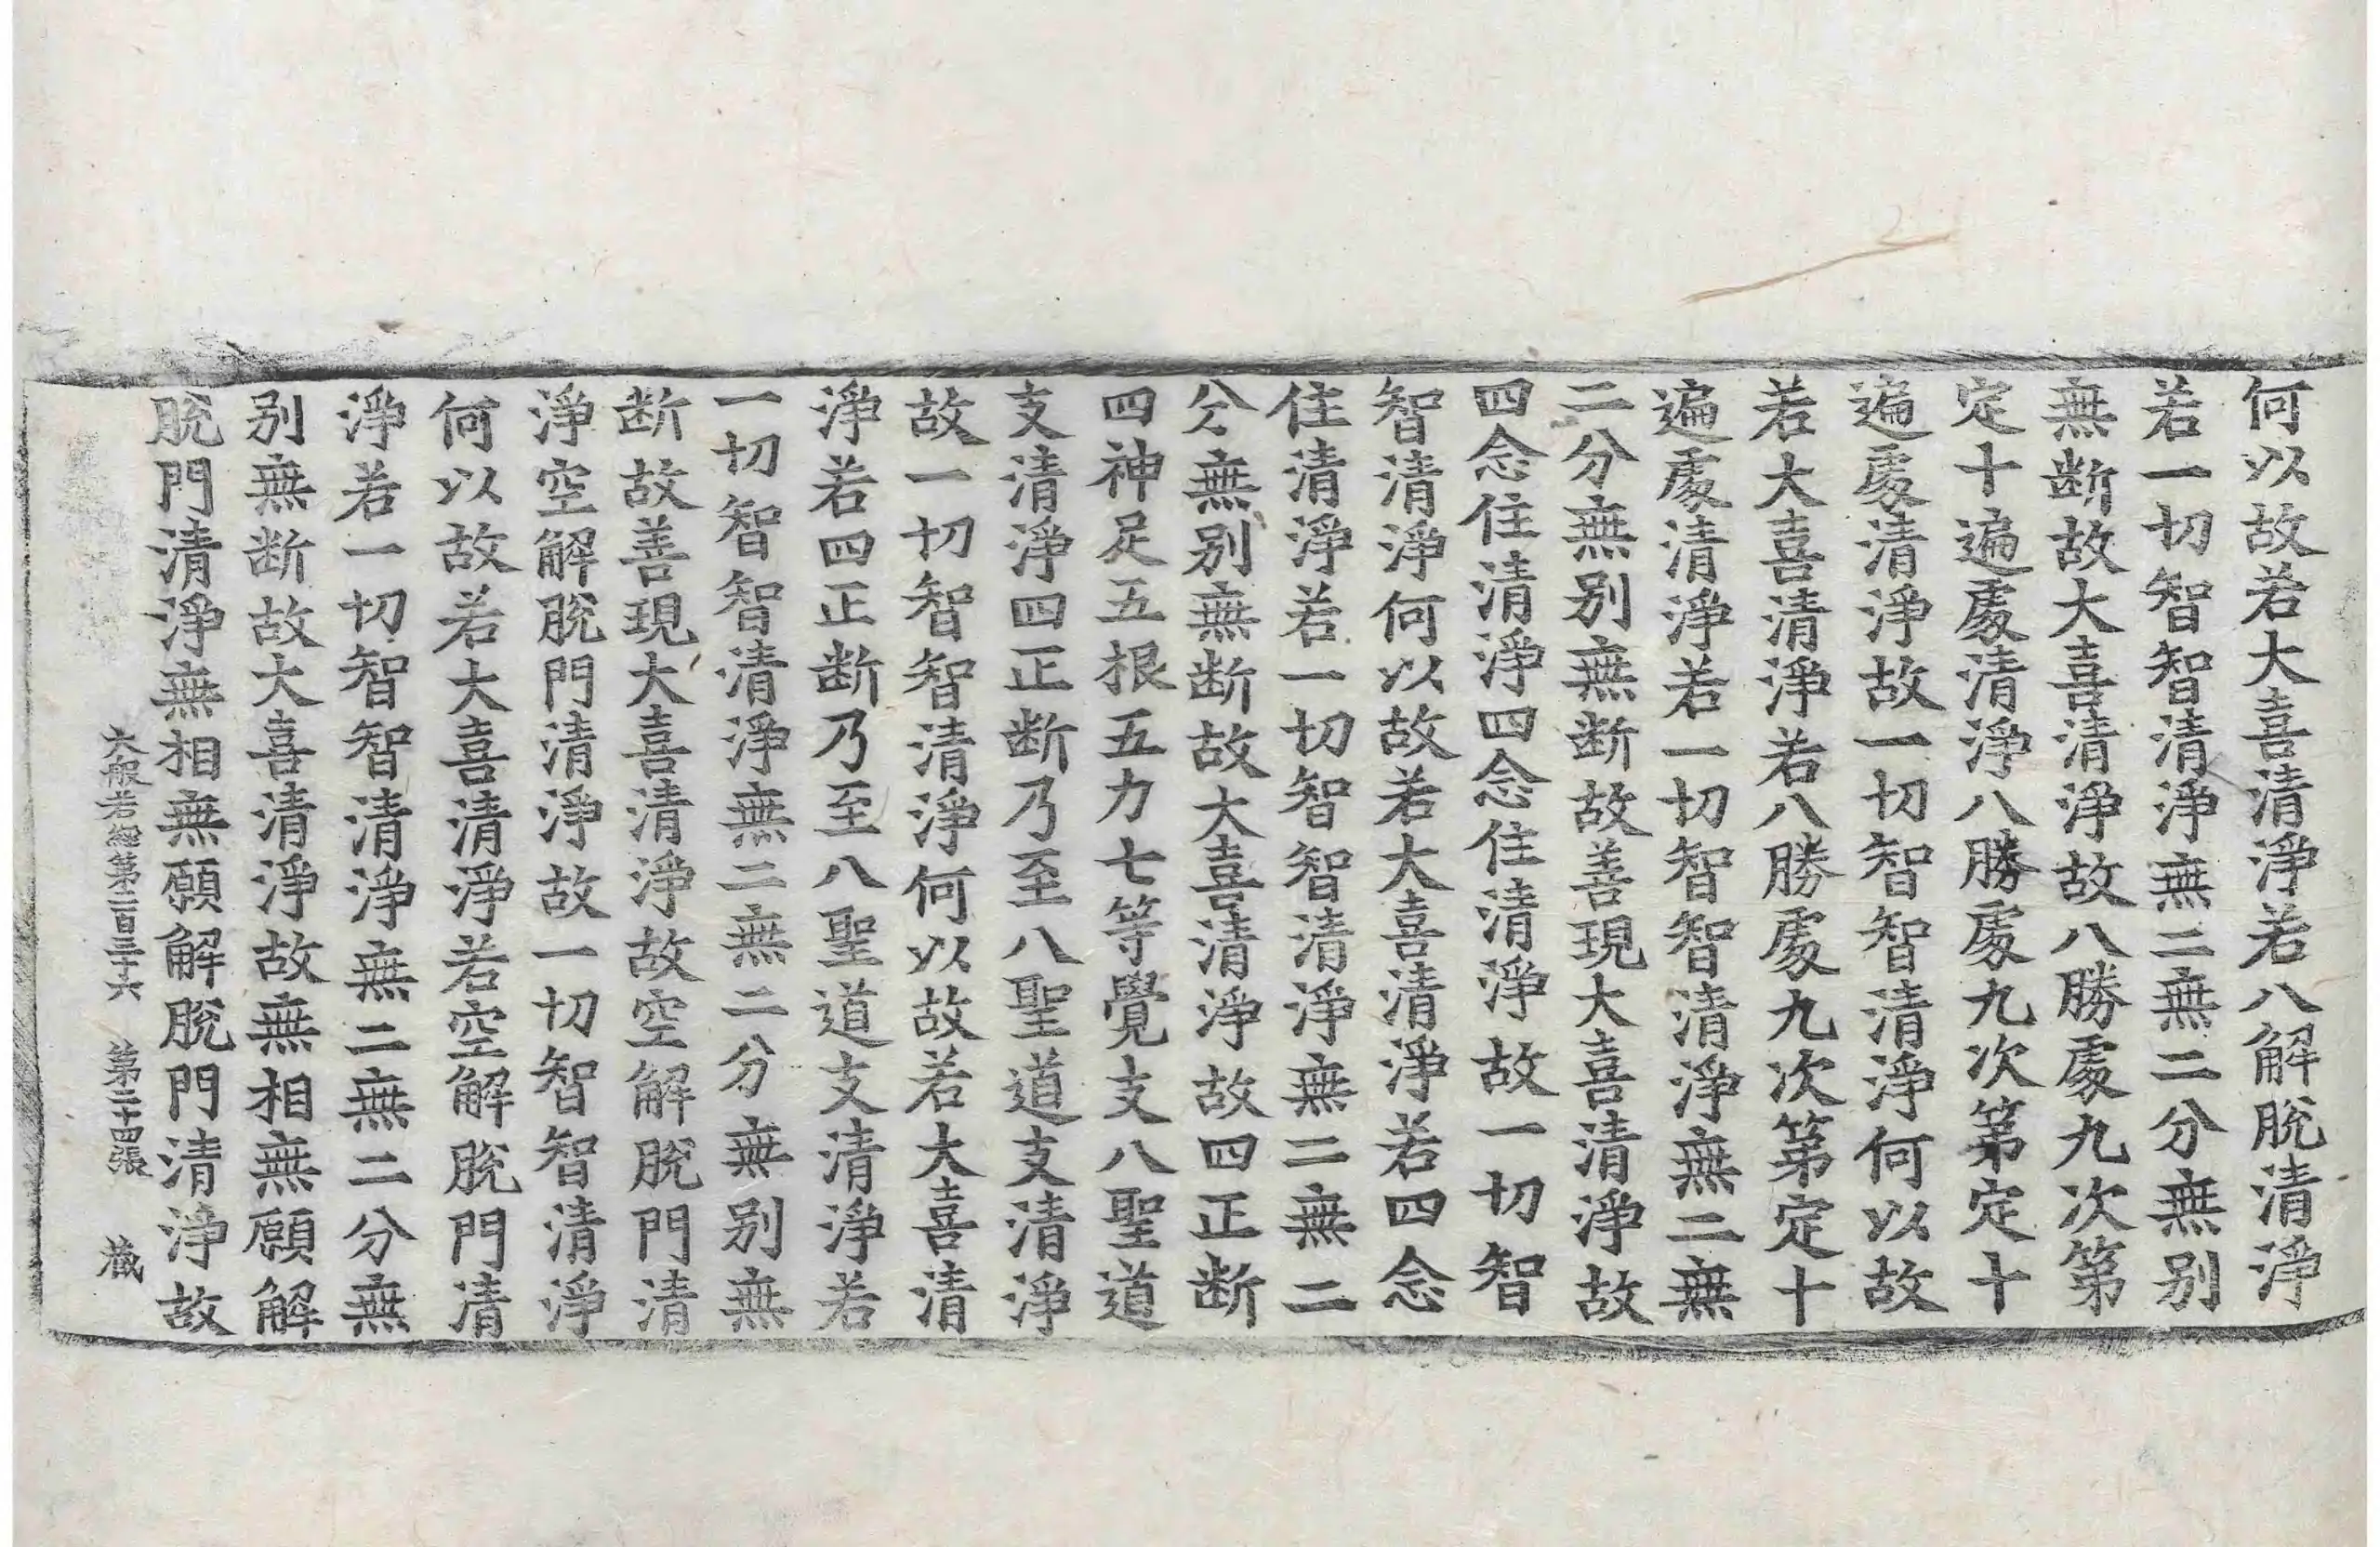 何以故若大喜清淨若八解脫清淨
若一切智智清淨無二無二分無別
無断故大喜清淨故八勝處九次第
定十遍處清淨八勝處九次第定十
遍處清淨故一切智智清淨何以故
若大喜清淨若八勝處九次第定十
遍處清淨若一切智智清淨無二無
二分無別無断故善現大喜清淨故
四念住清淨四念住清淨故一切智
智清淨何以故若大喜清淨若四念
住清淨若一切智智清淨無二無二
分無別無断故大喜清淨故四正断
四神足五根五力七等覺支八聖道
支清淨四正断乃至八聖道支清淨
故一切智智清淨何以故若大喜清
淨若四正断乃至八聖道支清淨若
一切智智清淨無二無二分無別無
断故善現大喜清淨故空解脫門清
淨空解脫門清淨故一切智智清淨
何以故若大喜清淨若空解脫門清
淨若一切智智清淨無二無二分無
別無断故大喜清淨故無相無願解
脫門清淨無相無願解脫門清淨故
大般若經第二百三十六 第二十四張 藏